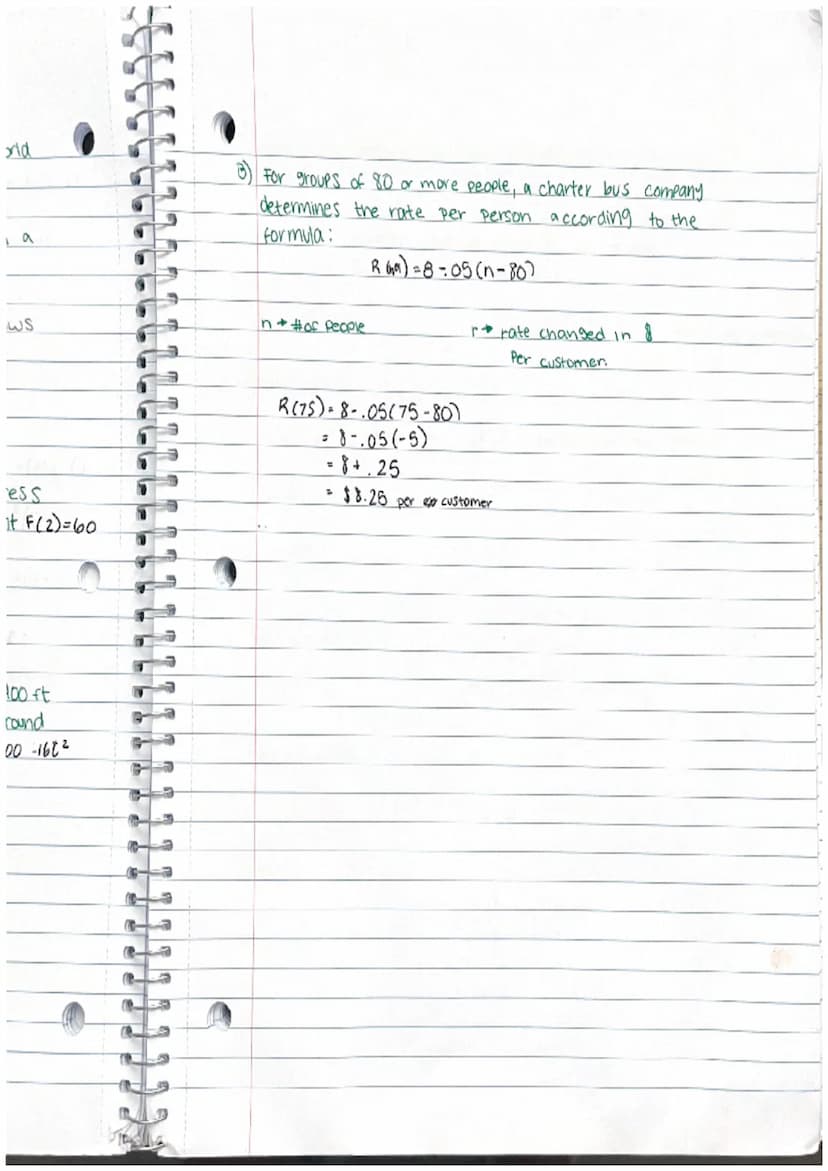 orld
, a
ws
ess
nt F(2)=60
100 ft
round
00 -16t²
③) For groups of 80 or more people, a charter bus company
determines the rate per person according to the
formula:
R = 8 - .05(n-80)
n → # of people
r → rate changed in $
Per customer.
R(75) = 8-.05(75-80)
= 8-.05(-5)
= 8+.25
= $8.25 per customer